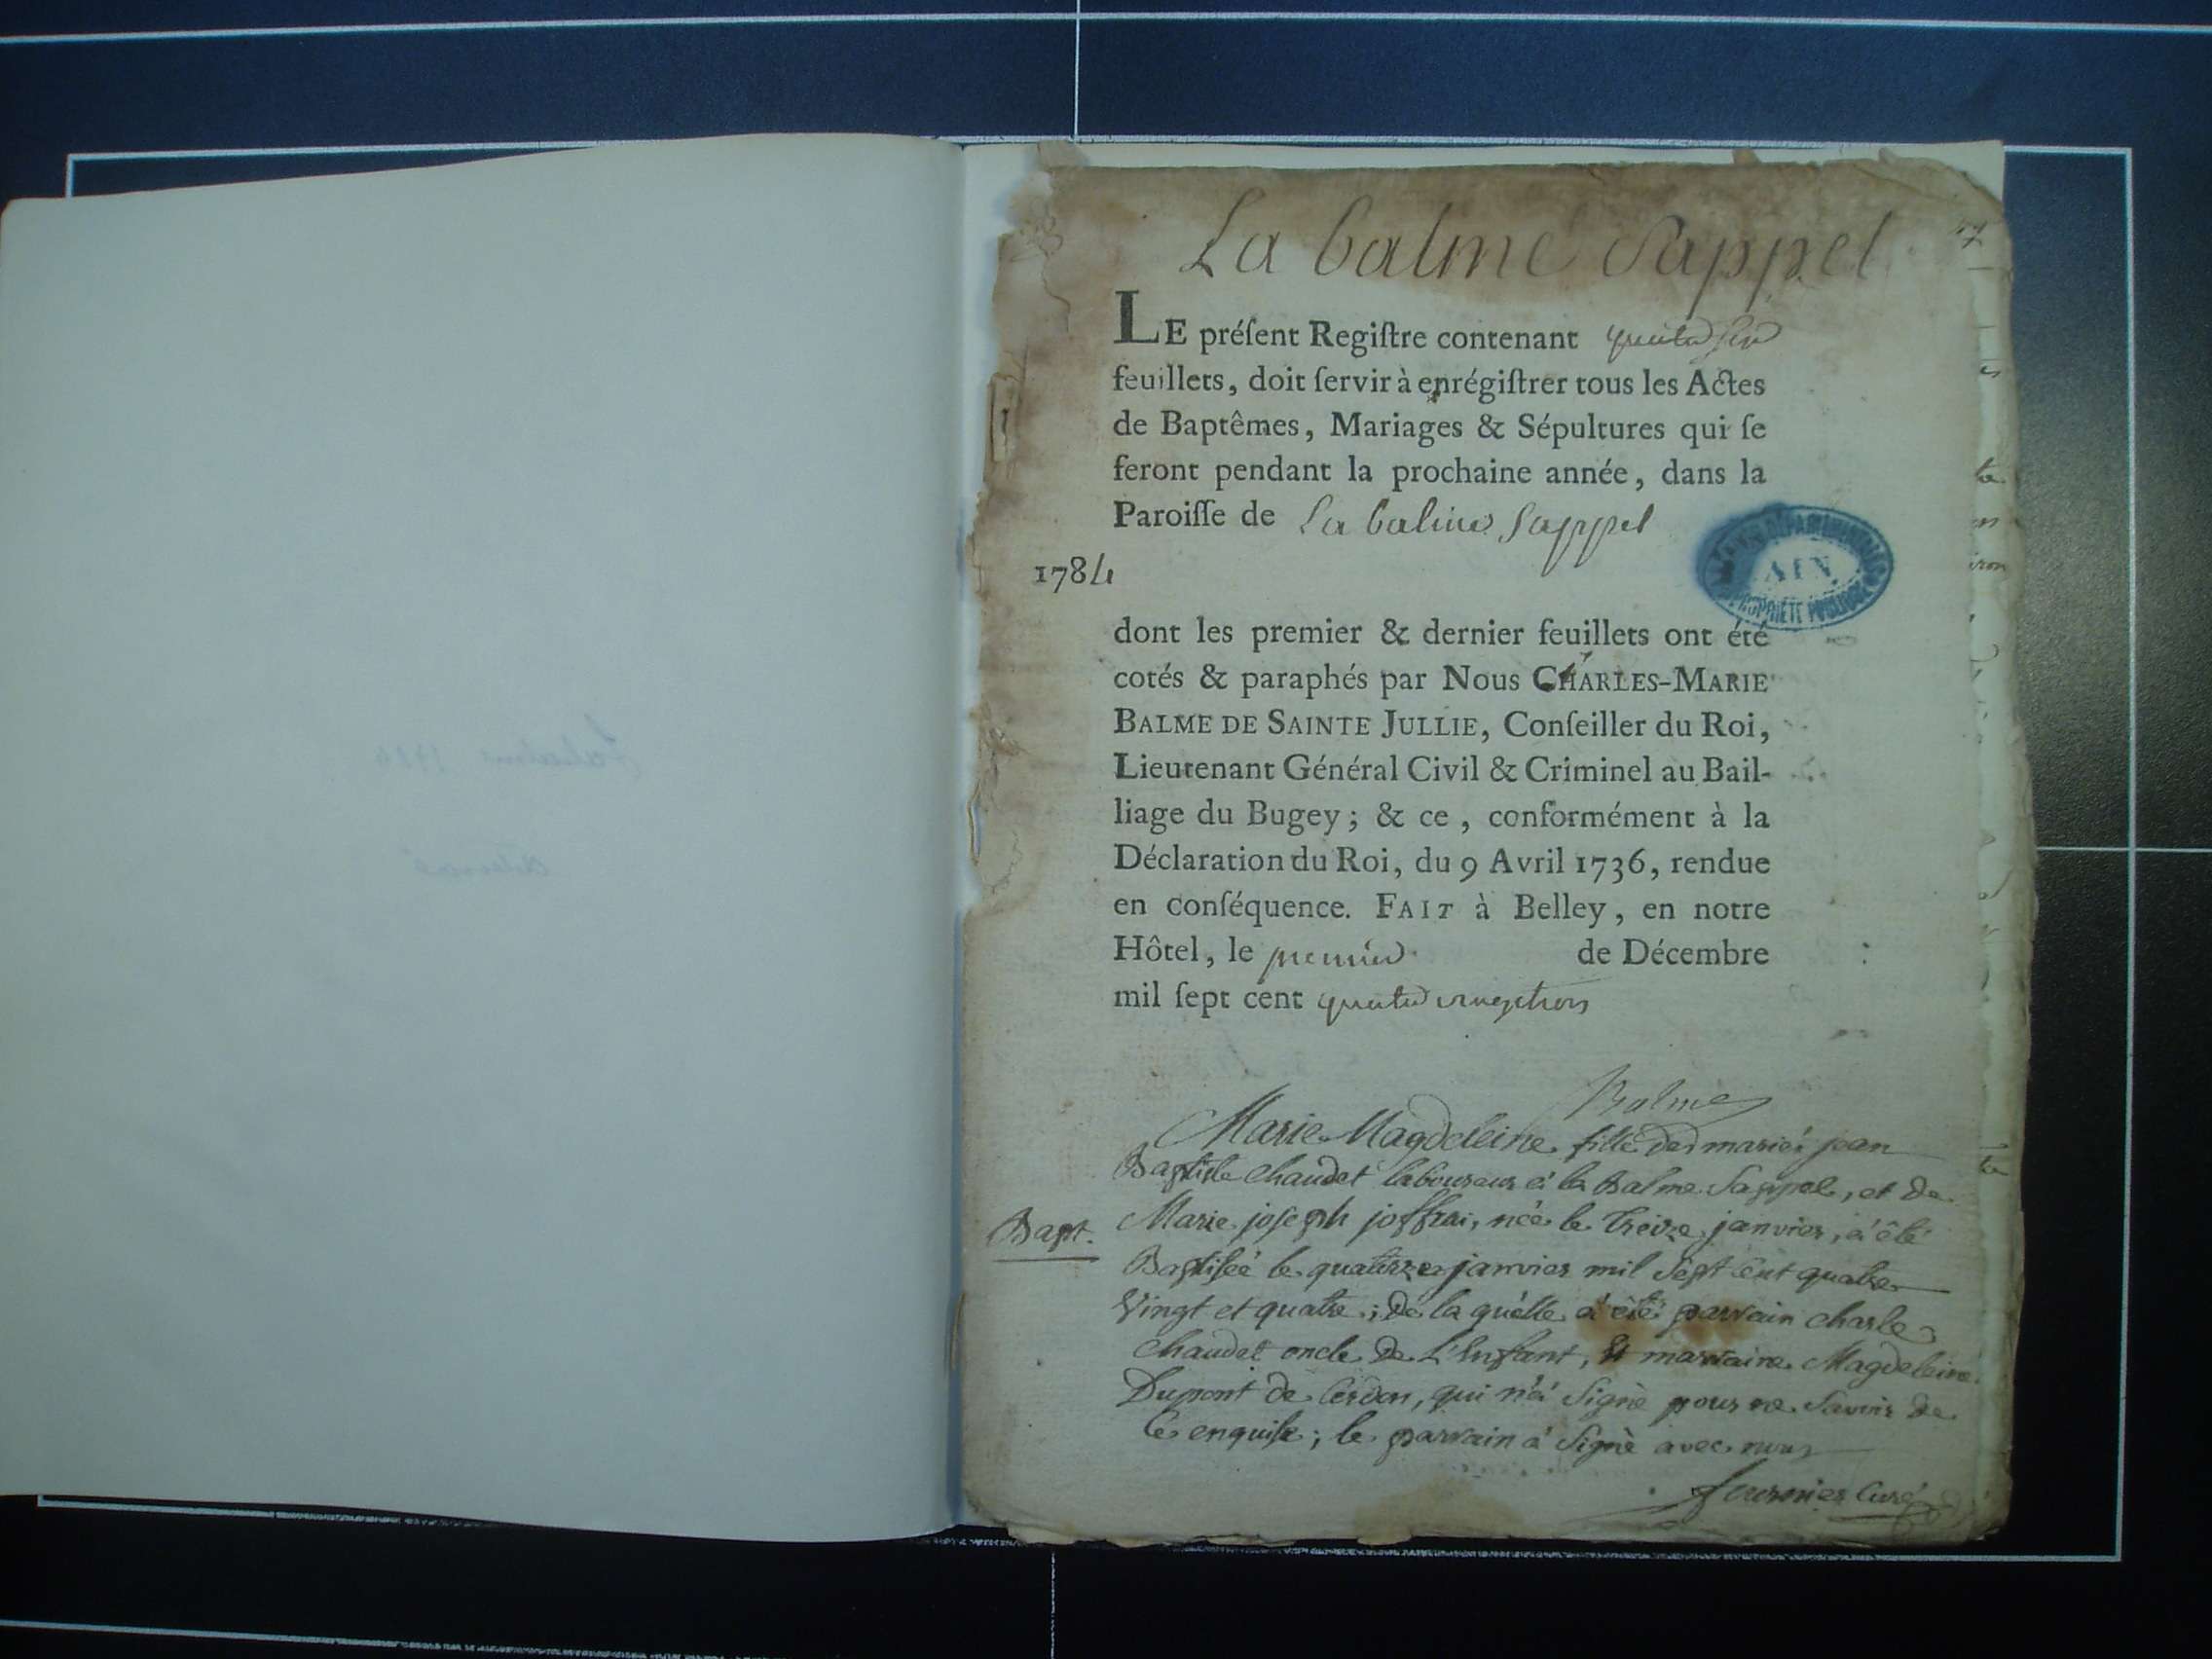 La balme Sappel
LE préſent Regiſtre contenant quatre
feuillets, doit ſervir à enrégiſtrer tous les Actes
de Baptêmes, Mariages & Sépultures qui ſe
feront pendant la prochaine année, dans la
Paroiſſe de La balme Sappel
1784
ARCHIVES DÉPARTEMENTALES
AIN
PROPRIÉTÉ PUBLIQUE
dont les premier & dernier feuillets ont été
cotés & paraphés par Nous CHARLES-MARIE
BALME DE SAINTE JULLIE, Conſeiller du Roi,
Lieutenant Général Civil & Criminel au Bail-
liage du Bugey; & ce, conformément à la
Déclaration du Roi, du 9 Avril 1736, rendue
en conſéquence. FAIT à Belley, en notre
Hôtel, le premier de Décembre
mil ſept cent quatre vingt trois
Balme
Marie Magdeleine fille des mariés jean
Baptiste Chaudet laboureur à la Balme Sappel, et de
Bapt. Marie joseph joffrai, née le treize janvier, à été
Baptisée le quatorze janvier mil Sept Cent quatre
Vingt et quatre; de la quelle a été parrain charle
Chaudet oncle de L'Enfant, et marraine Magdeleine
Dupont de Cerdon, qui n'a Signé pour ne Savoir de
Ce enquise; le parrain à Signé avec nous
Curé